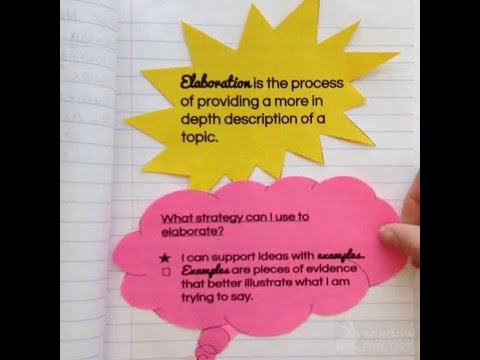 Elaboration is the process
of providing a more in
depth description of a
topic.
What strategy can I use to
elaborate?
★ I can support ideas with examples.
☐ Examples are pieces of evidence
that better illustrate what I am
trying to say.